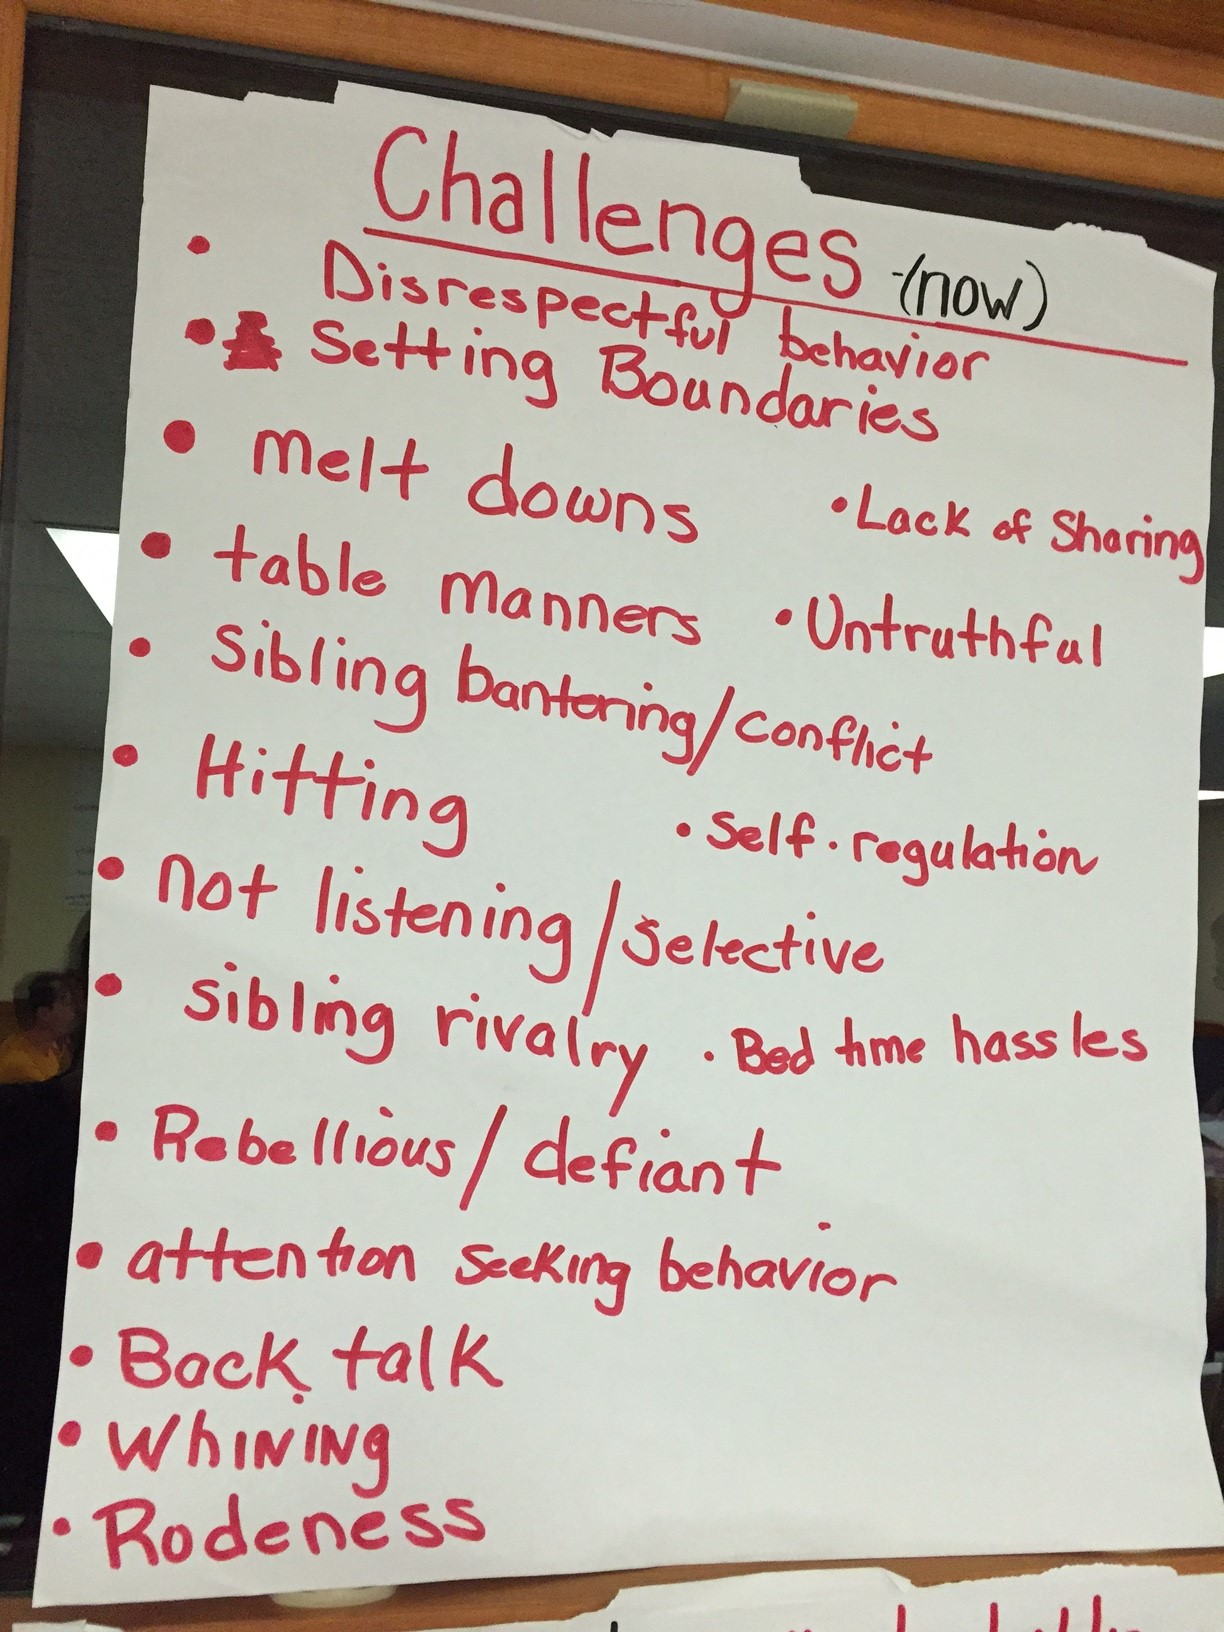 Challenges (now)
• Disrespectful behavior
• Setting Boundaries
• melt downs
• Lack of Sharing
• table manners
• Untruthful
• Sibling bantering/conflict
• Hitting
• Self-regulation
• not listening/selective
• sibling rivalry
• Bed time hassles
• Rebellious/defiant
• attention seeking behavior
• Back talk
• Whining
• Rodeness